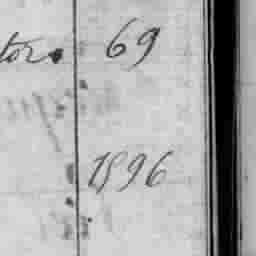 tor. 69
1896